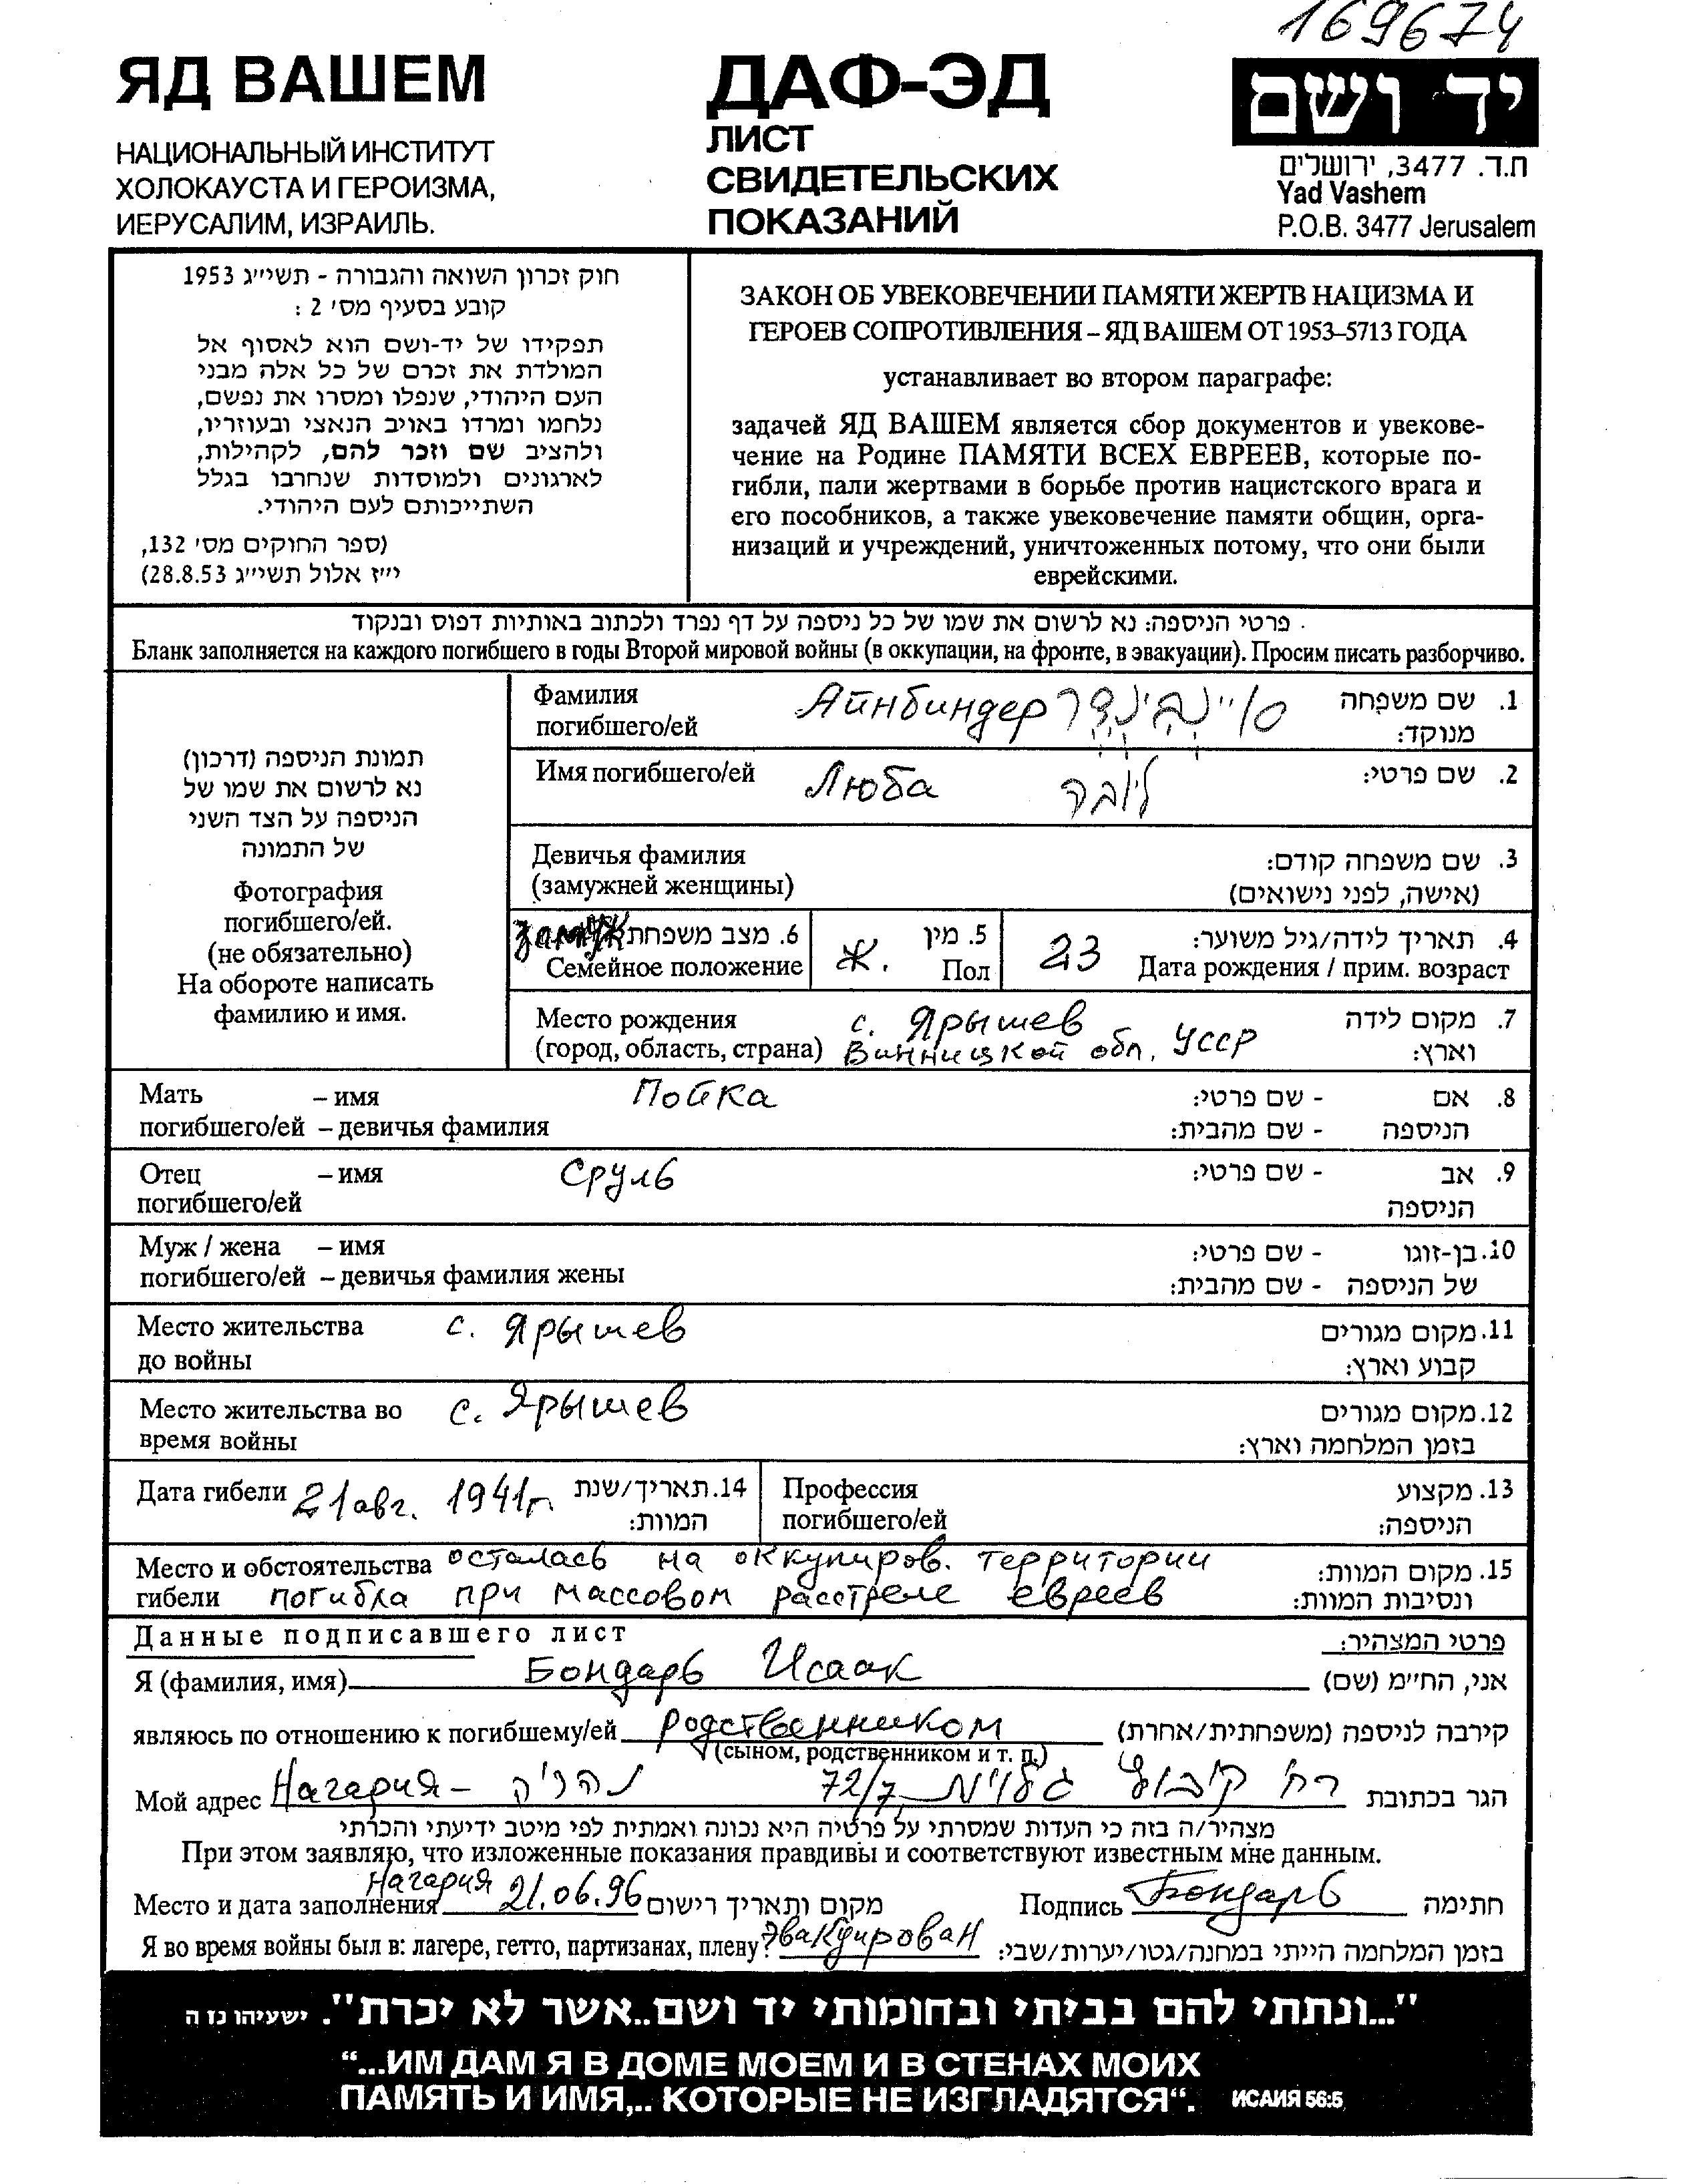 169674
ЯД ВАШЕМ
НАЦИОНАЛЬНЫЙ ИНСТИТУТ
ХОЛОКАУСТА И ГЕРОИЗМА,
ИЕРУСАЛИМ, ИЗРАИЛЬ.
ДАФ-ЭД
ЛИСТ
СВИДЕТЕЛЬСКИХ
ПОКАЗАНИЙ
יד ושם
ת.ד. 3477, ירושלים
Yad Vashem
P.O.B. 3477 Jerusalem
חוק זכרון השואה והגבורה - תשי״ג 1953
קובע בסעיף מס׳ 2 :
תפקידו של יד-ושם הוא לאסוף אל
המולדת את זכרם של כל אלה מבני
העם היהודי, שנפלו ומסרו את נפשם,
נלחמו ומרדו באויב הנאצי ובעוזריו,
ולהציב שם וזכר להם, לקהילות,
לארגונים ולמוסדות שנחרבו בגלל
השתייכותם לעם היהודי.
(ספר החוקים מס׳ 132,
י״ז אלול תשי״ג 28.8.53)
ЗАКОН ОБ УВЕКОВЕЧЕНИИ ПАМЯТИ ЖЕРТВ НАЦИЗМА И
ГЕРОЕВ СОПРОТИВЛЕНИЯ – ЯД ВАШЕМ ОТ 1953–5713 ГОДА
устанавливает во втором параграфе:
задачей ЯД ВАШЕМ является сбор документов и увекове-
чение на Родине ПАМЯТИ ВСЕХ ЕВРЕЕВ, которые по-
гибли, пали жертвами в борьбе против нацистского врага и
его пособников, а также увековечение памяти общин, орга-
низаций и учреждений, уничтоженных потому, что они были
еврейскими.
פרטי הניספה: נא לרשום את שמו של כל ניספה על דף נפרד ולכתוב באותיות דפוס ובנקוד
Бланк заполняется на каждого погибшего в годы Второй мировой войны (в оккупации, на фронте, в эвакуации). Просим писать разборчиво.
תמונת הניספה (דרכון)
נא לרשום את שמו של
הניספה על הצד השני
של התמונה
Фотография
погибшего/ей.
(не обязательно)
На обороте написать
фамилию и имя.
Фамилия Айнбиндер 1. שם משפחה
погибшего/ей מנוקד:
Имя погибшего/ей Люба ליובה 2. שם פרטי:
Девичья фамилия 3. שם משפחה קודם:
(замужней женщины) (אישה, לפני נישואים)
замуж 6. מצב משפחתי ж. 5. מין 23 4. תאריך לידה/גיל משוער:
Семейное положение Пол Дата рождения / прим. возраст
Место рождения с. Ярышев 7. מקום לידה
(город, область, страна) Винницкой обл. УССР וארץ:
Мать – имя Пойка - שם פרטי: 8. אם
погибшего/ей – девичья фамилия - שם מהבית: הניספה
Отец – имя Сруль - שם פרטי: 9. אב
погибшего/ей הניספה
Муж / жена – имя - שם פרטי: 10. בן-זוגו
погибшего/ей – девичья фамилия жены - שם מהבית: של הניספה
Место жительства с. Ярышев 11. מקום מגורים
до войны קבוע וארץ:
Место жительства во с. Ярышев 12. מקום מגורים
время войны בזמן המלחמה וארץ:
Дата гибели 21 авг. 1941г. 14. תאריך/שנת Профессия 13. מקצוע
המוות: погибшего/ей הניספה:
Место и обстоятельства осталась на оккупиров. территории 15. מקום המוות:
гибели погибла при массовом расстреле евреев ונסיבות המוות:
Данные подписавшего лист פרטי המצהיר:
Я (фамилия, имя) Бондарь Исаак אני, הח״מ (שם)
являюсь по отношению к погибшему/ей родственником קירבה לניספה (משפחתית/אחרת)
(сыном, родственником и т. п.)
Мой адрес Нагария – נהריה 72/7 רח׳ קיבוץ גלויות הגר בכתובת
מצהיר/ה בזה כי העדות שמסרתי על פרטיה היא נכונה ואמתית לפי מיטב ידיעתי והכרתי
При этом заявляю, что изложенные показания правдивы и соответствуют известным мне данным.
Место и дата заполнения Нагария 21.06.96 מקום ותאריך רישום Подпись Бондарь חתימה
Я во время войны был в: лагере, гетто, партизанах, плену? Эвакуирован בזמן המלחמה הייתי במחנה/גטו/יערות/שבי:
"...ונתתי להם בביתי ובחומותי יד ושם..אשר לא יכרת". ישעיהו נו ה
“...ИМ ДАМ Я В ДОМЕ МОЕМ И В СТЕНАХ МОИХ
ПАМЯТЬ И ИМЯ,.. КОТОРЫЕ НЕ ИЗГЛАДЯТСЯ“. ИСАИЯ 56:5